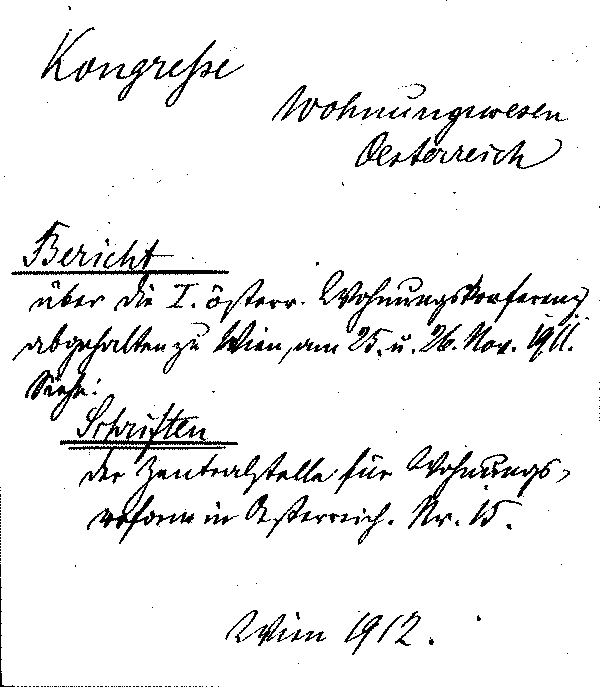 Kongresse
Wohnungswesen
Oesterreich
Bericht
über die I. österr. Wohnungskonferenz
abgehalten zu Wien, am 25. u. 26. Nov. 1911.
Siehe:
Schriften
der Zentralstelle für Wohnungs-
reform in Oesterreich. Nr. 15.
Wien 1912.